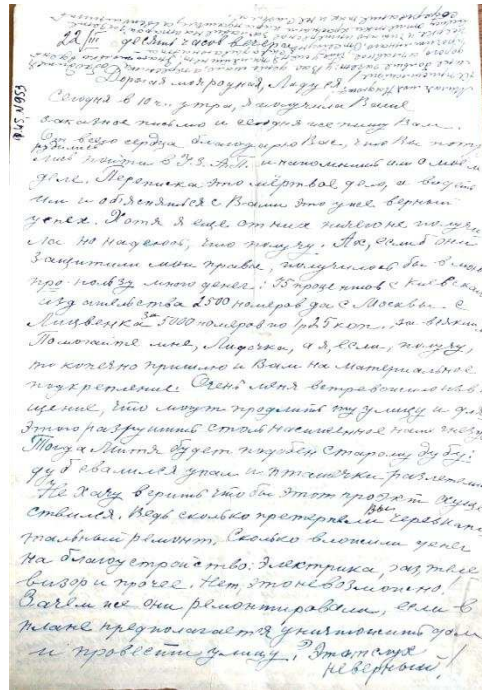 22/III десять часов вечера
Дорогая моя родная, Лидуся!
Сегодня в 10 ч. утра, я получила Ваше
заказное письмо и сегодня же пишу Вам.
От всего сердца благодарю Вас, что Вы потру
дились пойти в У.З.А.П. и напомнить им о моем
деле. Переписка это мёртвое дело, а видеть
им и объясняться с Вами это уже верный
успех. Хотя я еще от них ничего не получи
ла но надеюсь, что получу. Ах, если б они
защитили мои права, получилось бы в мою
пользу много денег: 35 процентов с Киевского
издательства 2500 номеров да с Москвы. С
за 5000 номеров по 1р 25 коп. за
Помогайте мне, Лидочка, а я, если, получу,
то конечно пришлю и Вам на материальное
подкрепление. Очень меня встревожило изве
щение, что могут продлить ту улицу и для
этого разрушить столь насиженное нам гнездо
Тогда Митя будет подобен старому дубу:
дуб свалился упал и пташечки разлетели
Не хачу верить что бы этот проэкт осуще
ствился. Ведь сколько претерпели Вы через капи
тальный ремонт. Сколько вложили денег
на благоустройство. Электрика, газ, теле
визор и прочее. Нет, это невозможно!
Зачем же они ремонтировали, если в
плане предполагается уничтожить дом
и провести улицу? Этот слух
неверный!
1945 N953